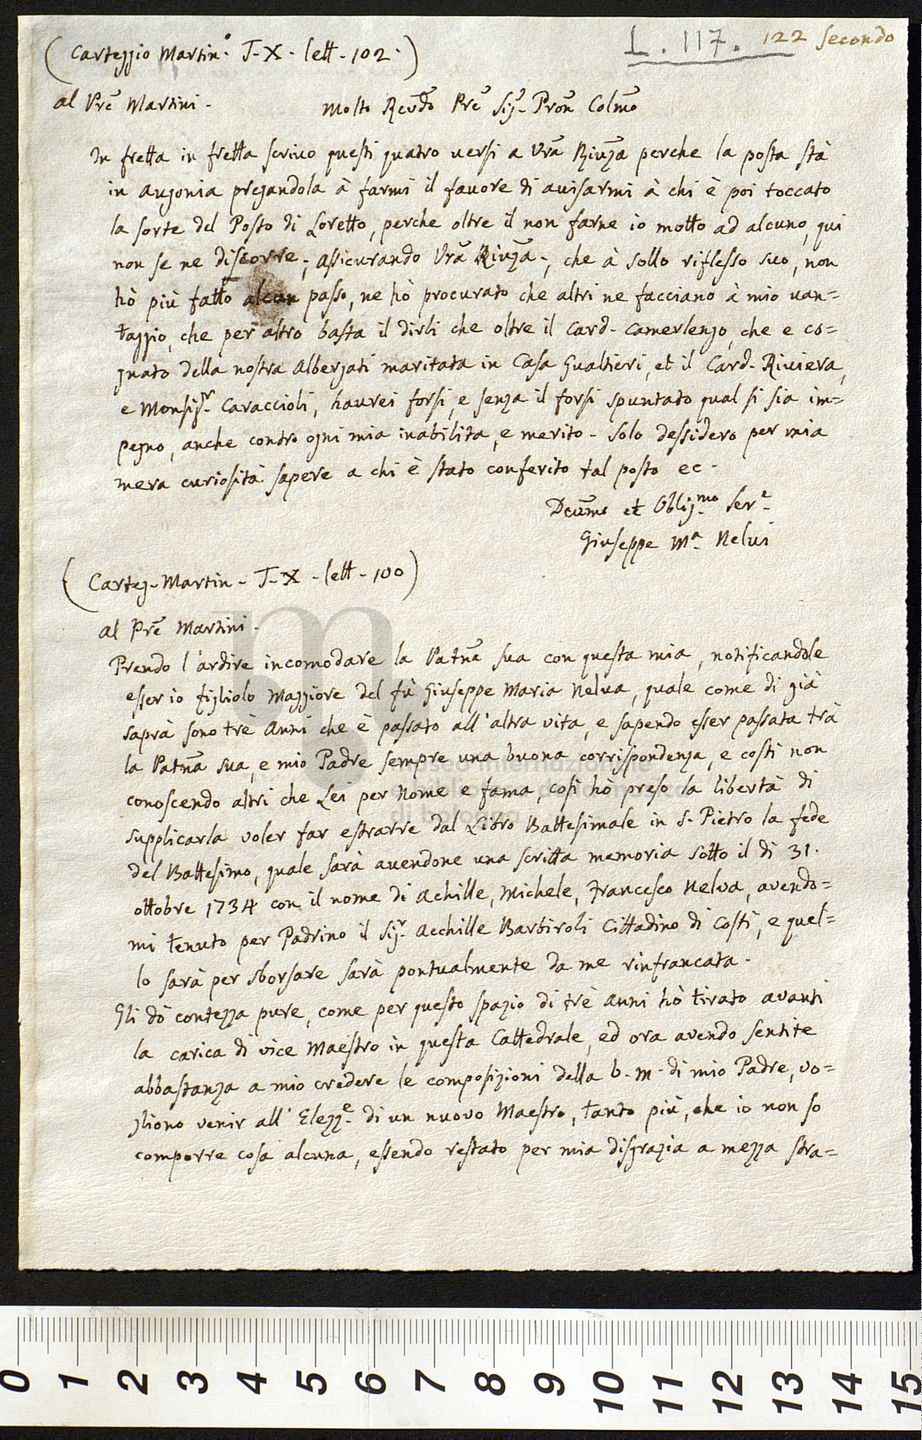 L. 117. 122 secondo
(Carteggio Martin.º T-X- lett-102.)
al Prē Martini.
Molto Revd̄o Prē Sig.r Pron̄ Colm̄o
In fretta in fretta scrivo questi quatro versi a Vrā Rivz̄a perche la posta stà
in augonia pregandola à farmi il favore di avisarmi à chi è poi toccato
la sorte del Posto di Loretto, perche oltre il non farne io motto ad alcuno, qui
non se ne discorre, assicurando Vrā Rivz̄a, che à sollo riflesso suo, non
hò più fatto alcun passo, ne hò procurato che altri ne facciano à mio van=
taggio, che per altro basta il dirli che oltre il Card. Camerlengo, che e co=
gnato della nostra Albergati maritata in Casa Gualtieri, et il Card. Riviera,
e Monsig.r Caraccioli, haurei forsi, e senza il forsi spuntato qual si sia im=
pegno, anche contro ogni mia inabilita, e merito. Solo dessidero per mia
mera curiosità sapere a chi è stato conferito tal posto ec.
Devm̄o et Oblig.mo Ser.e
Giuseppe M.a Nelvi
(Carteg-Martin-T-X-lett-100)
al Prē Martini.
Prendo l'ardire incomodare la Patnā sua con questa mia, notificandole
esser io figliolo Maggiore del fù Giuseppe Maria Nelva, quale come di già
saprà sono trè Anni che è passato all'altra vita, e sapendo esser passata trà
la Patnā sua, e mio Padre sempre una buona corrispondenza, e costi non
conoscendo altri che Lei per Nome e fama, così hò preso la libertà di
supplicarla voler far estrarre dal Libro Battesimale in S. Pietro la fede
del Battesimo, quale sarà avendone una scritta memoria sotto il dì 31.
ottobre 1734 con il nome di Achille, Michele, Francesco Nelva, avendo=
mi tenuto per Padrino il Sig.r Acchille Barbiroli Cittadino di Costì, e quel=
lo sarà per sborsare sarà pontualmente da me rinfrancata.
Gli dò contezza pure, come per questo spazio di trè anni hò tirato avanti
la carica di vice Maestro in questa Cattedrale, ed ora avendo sentite
abbastanza a mio credere le composizioni della b. m. di mio Padre, vo=
gliono venir all'Elezz.e di un nuovo Maestro, tanto più, che io non so
comporre cosa alcuna, essendo restato per mia disgrazia a mezza stra=
museo internazionale
di bologna
0 1 2 3 4 5 6 7 8 9 10 11 12 13 14 15